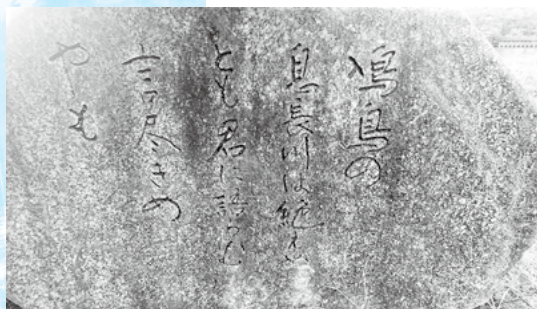 鳰鳥の
息長川は絶えぬ
とも君に語らむ
言尽きめ
やも